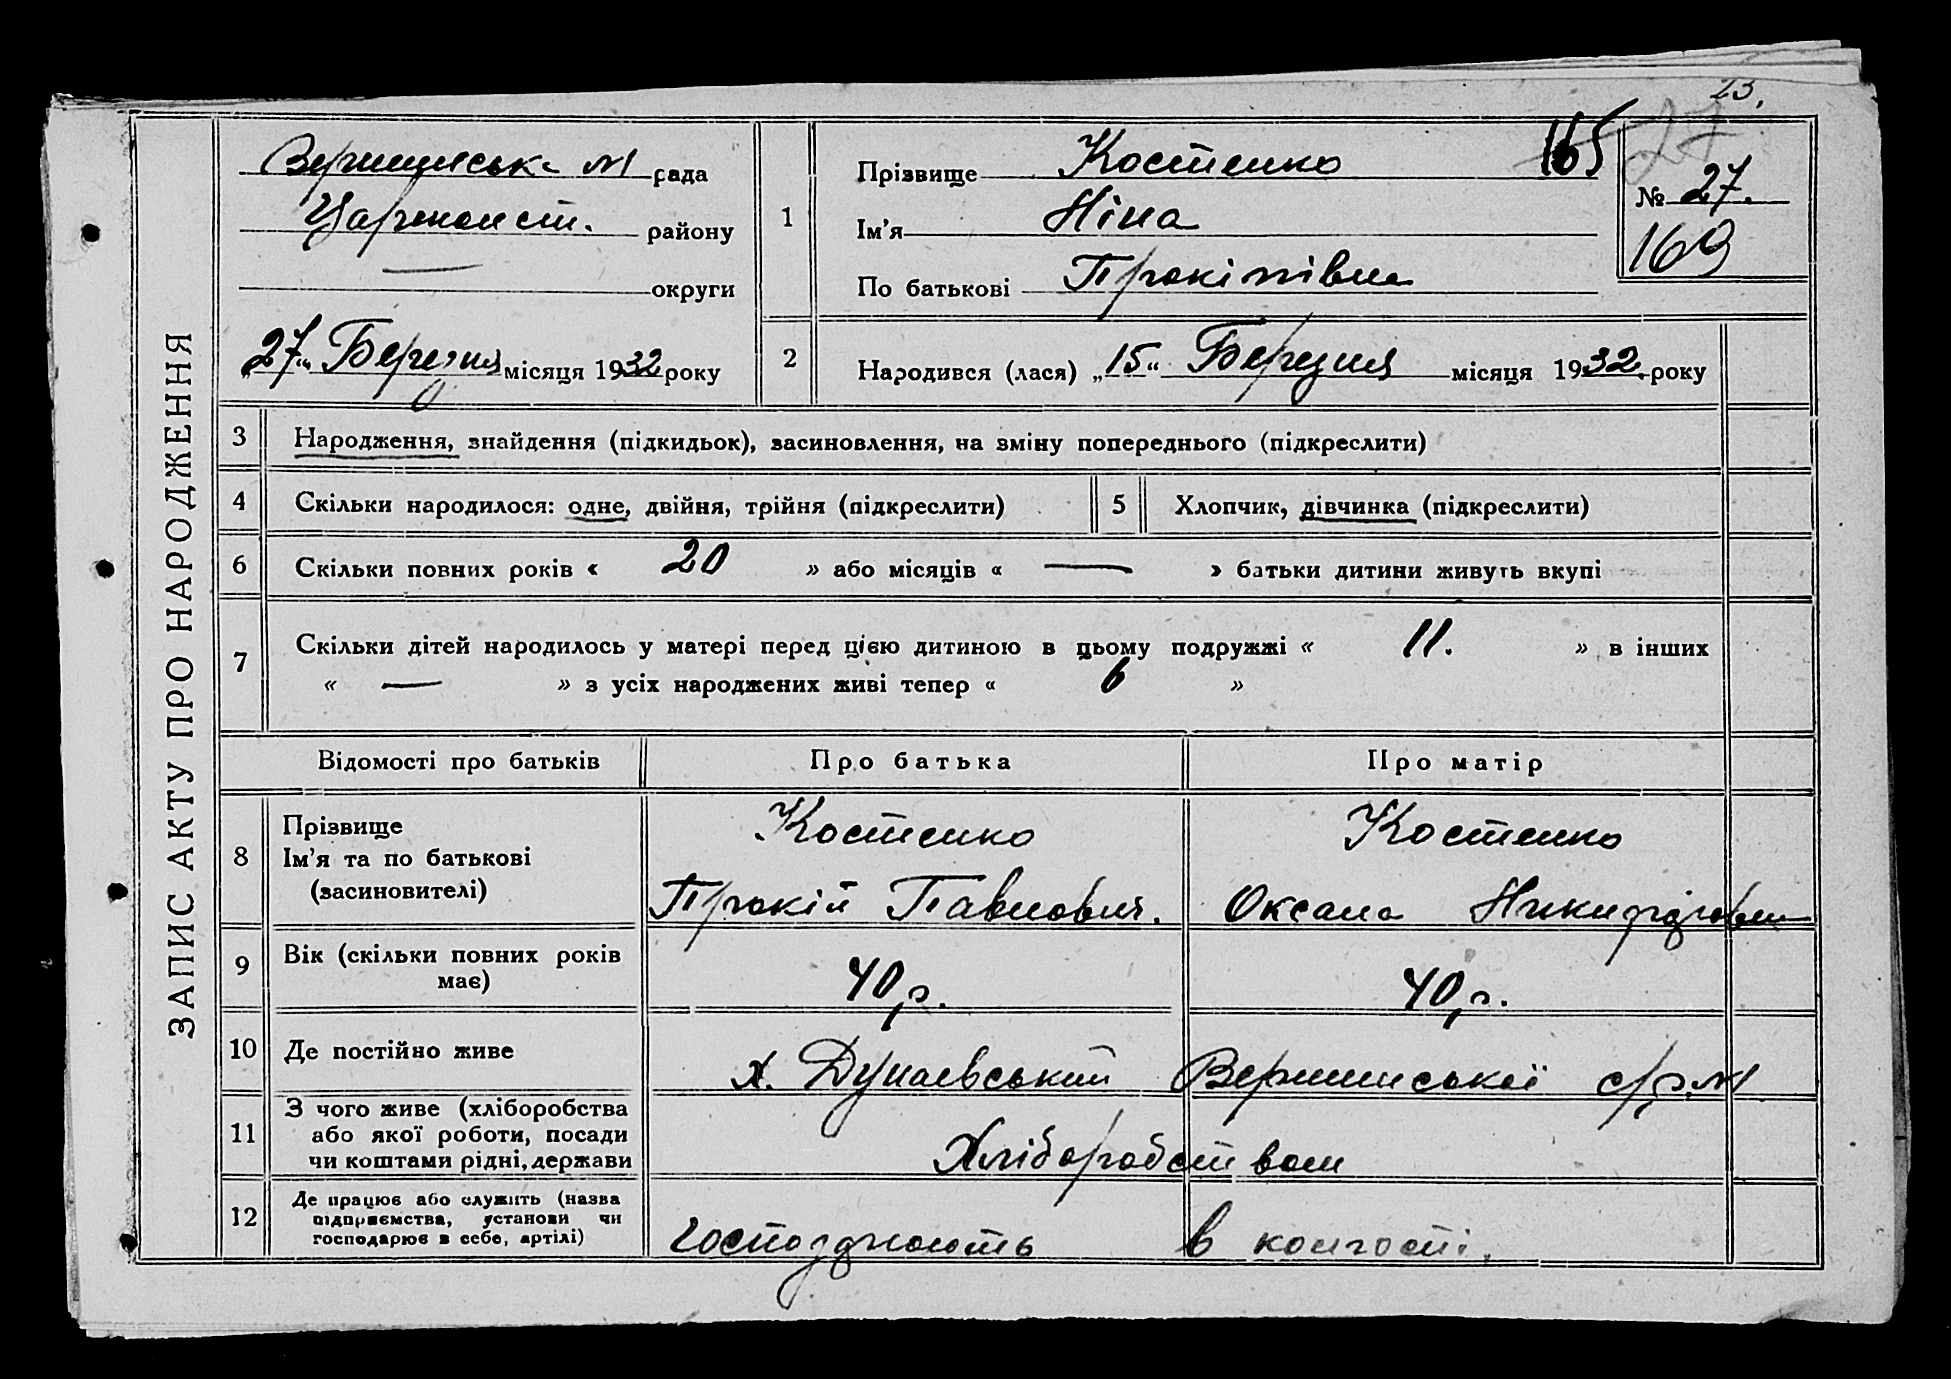 23.
27
165
ЗАПИС АКТУ ПРО НАРОДЖЕННЯ
рада
Царичанськ. району
— округи
„27“ Березня місяця 1932 року
1 Прізвище Костенко
Ім’я Ніна
По батькові Прокіпівна
№ 27.
169
2 Народився (лася) „15“ Березня місяця 1932 року
3 Народження, знайдення (підкидьок), засиновлення, на зміну попереднього (підкреслити)
4 Скільки народилося: одне, двійня, трійня (підкреслити)
5 Хлопчик, дівчинка (підкреслити)
6 Скільки повних років « 20 » або місяців « — » батьки дитини живуть вкупі
7 Скільки дітей народилось у матері перед цією дитиною в цьому подружжі « 11. » в інших
« — » з усіх народжених живі тепер « 6 »
Відомості про батьків Про батька Про матір
8 Прізвище
Ім’я та по батькові
(засиновителі)
Костенко
Прокіп Павлович.
Костенко
Оксана Никифорівна
9 Вік (скільки повних років
має)
40 р. 40 р.
10 Де постійно живе х. Дунаевський
11 З чого живе (хліборобства
або якої роботи, посади
чи коштами рідні, держави
Хліборобством
12 Де працює або служить (назва
підприємства, установи чи
господарює в себе, артілі)
в колгоспі.